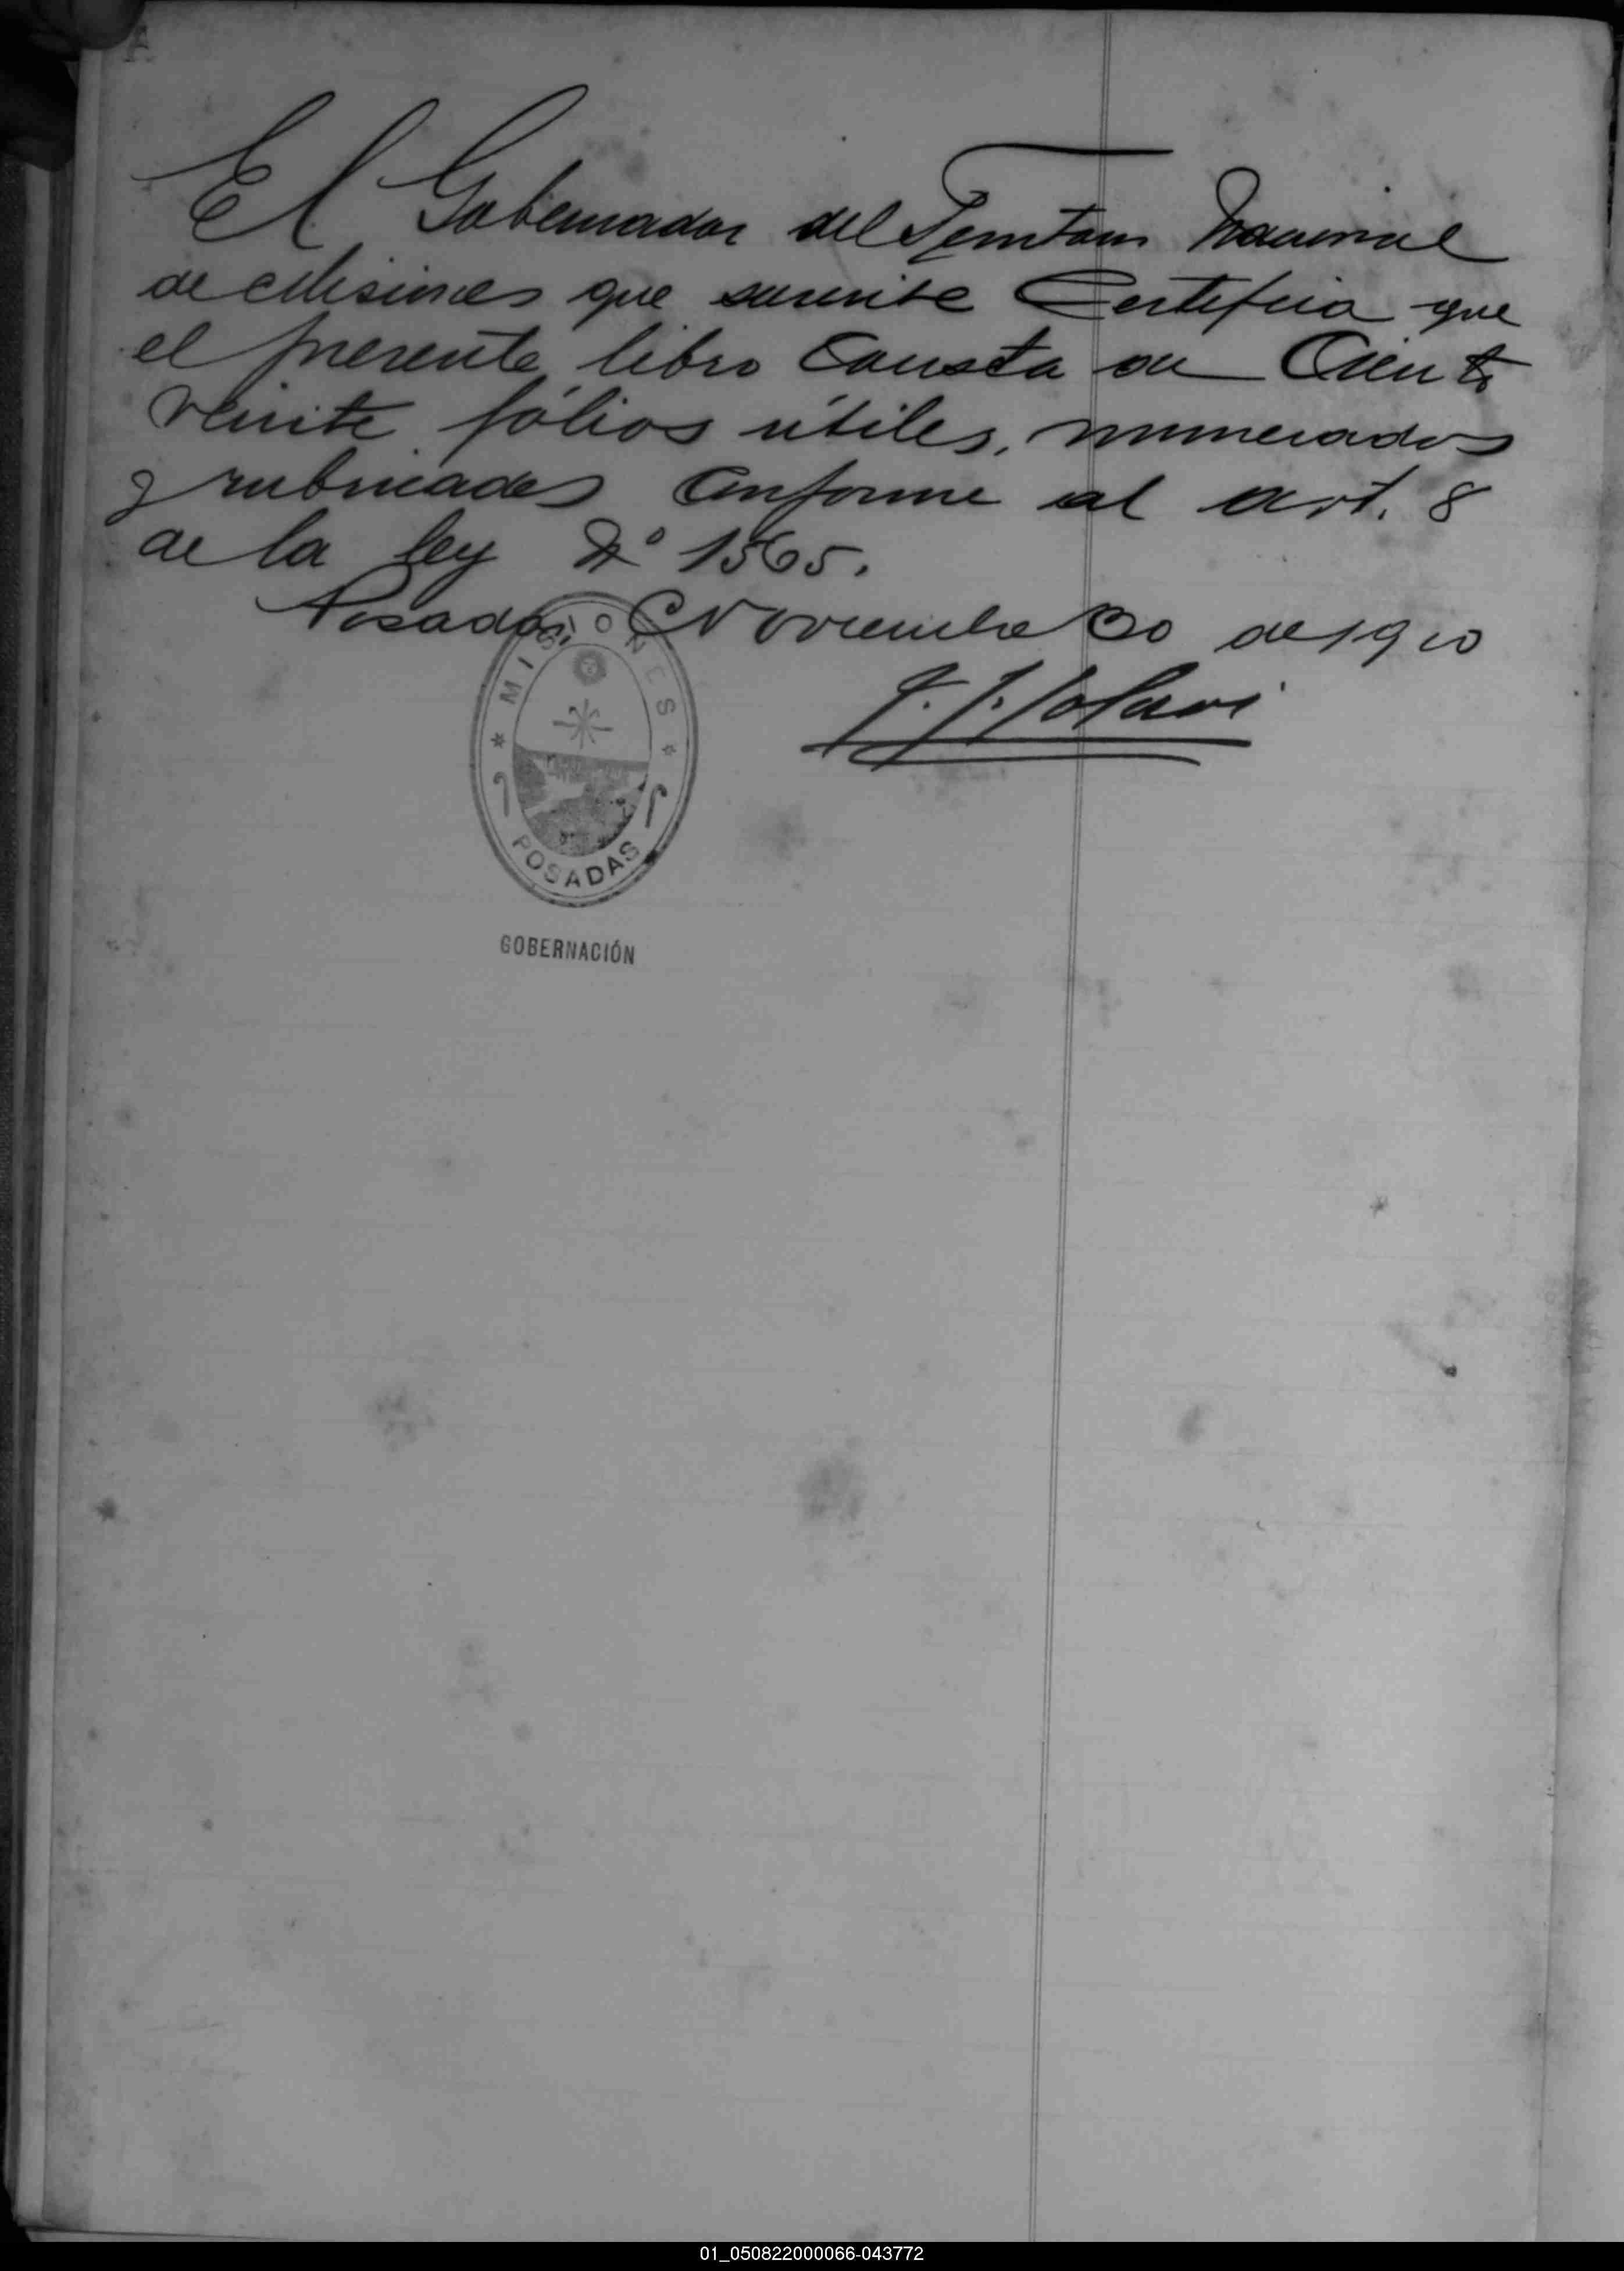 El Gobernador del Territorio Nacional
de Misiones que suscribe Certifica que
el presente libro Consta de Ciento
veinte fólios útiles, numerados
y rubricados Conforme al art. 8
de la ley Nº 1565.
Posadas, Noviembre 30 de 1910
MISIONES
POSADAS
GOBERNACIÓN
01_050822000066-043772